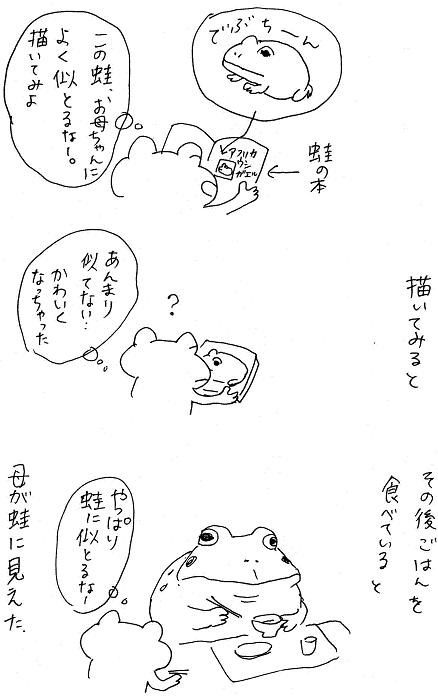 でぶちーん
この蛙、お母ちゃんに
よく似とるなー。
描いてみよ
アフリカ
ウシ
ガエル
蛙の本
描いてみると
?
あんまり
似てない…
かわいく
なっちゃった
その後ごはんを
食べていると
やっぱり
蛙に似とるなー
母が蛙に見えた.